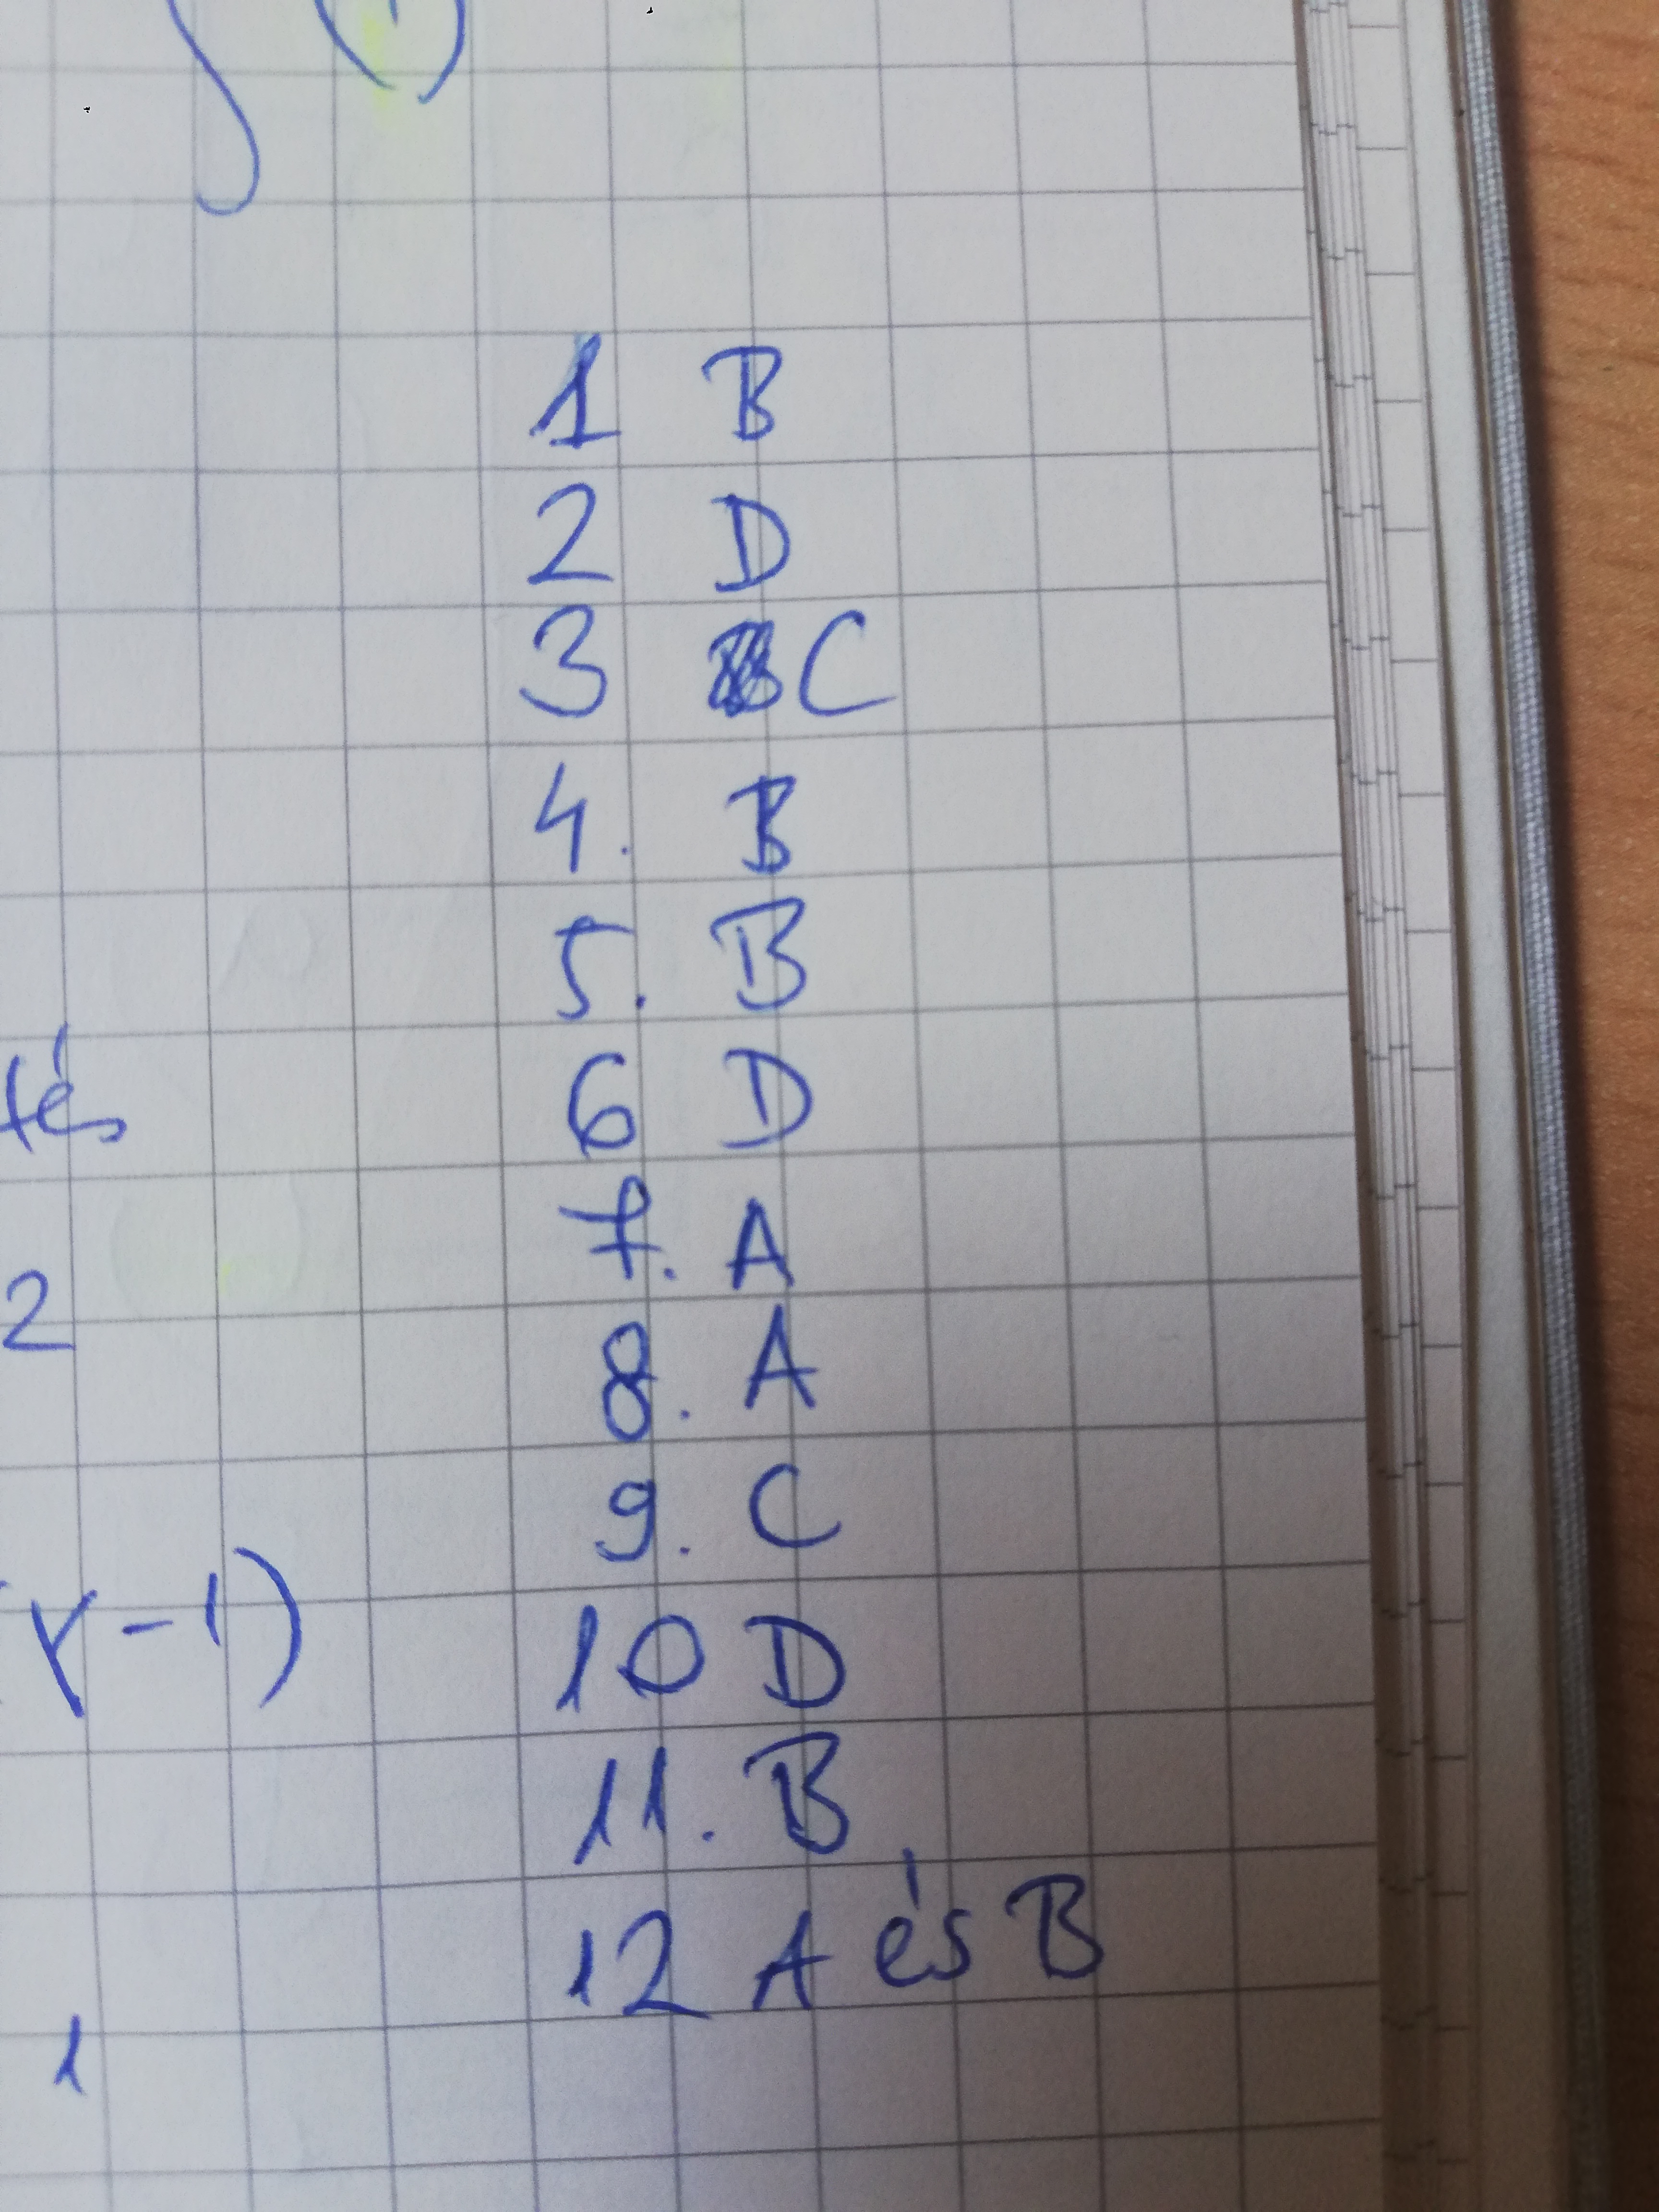 1 B
2 D
3 C
4. B
5. B
6 D
tés
7. A
2
8. A
9. C
(r-1)
10 D
11. B
12 A és B
1